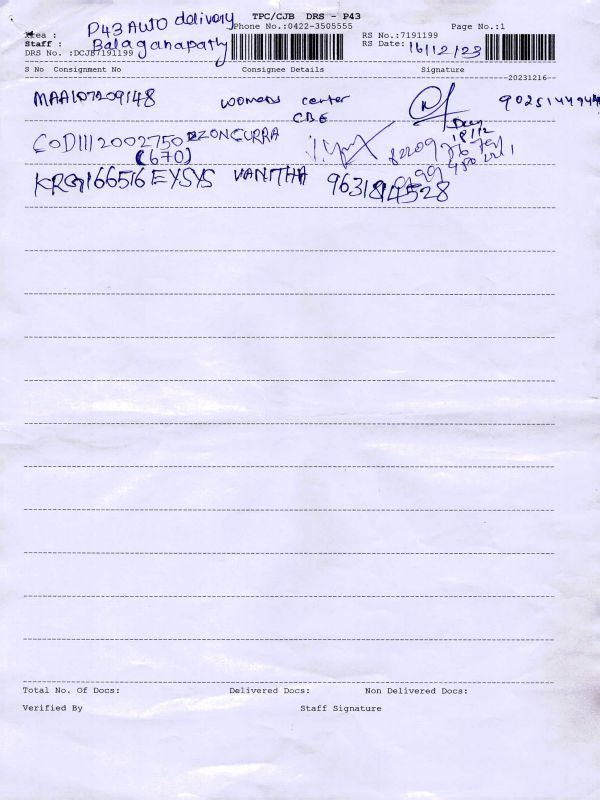 TPC/CJB DRS - P43
Area : P43 Auto delivery Phone No.:0422-3505555 Page No.:1
Staff : Balaganapathy RS No.:7191199
DRS No. :DCJB7191199 RS Date: 16/12/23
S No Consignment No Consignee Details Signature
20231216
MAA107209148 womens center
CBE
COD1112002750
(670)
KRG166516 EYSYS VANITHA
Total No. Of Docs: Delivered Docs: Non Delivered Docs:
Verified By Staff Signature